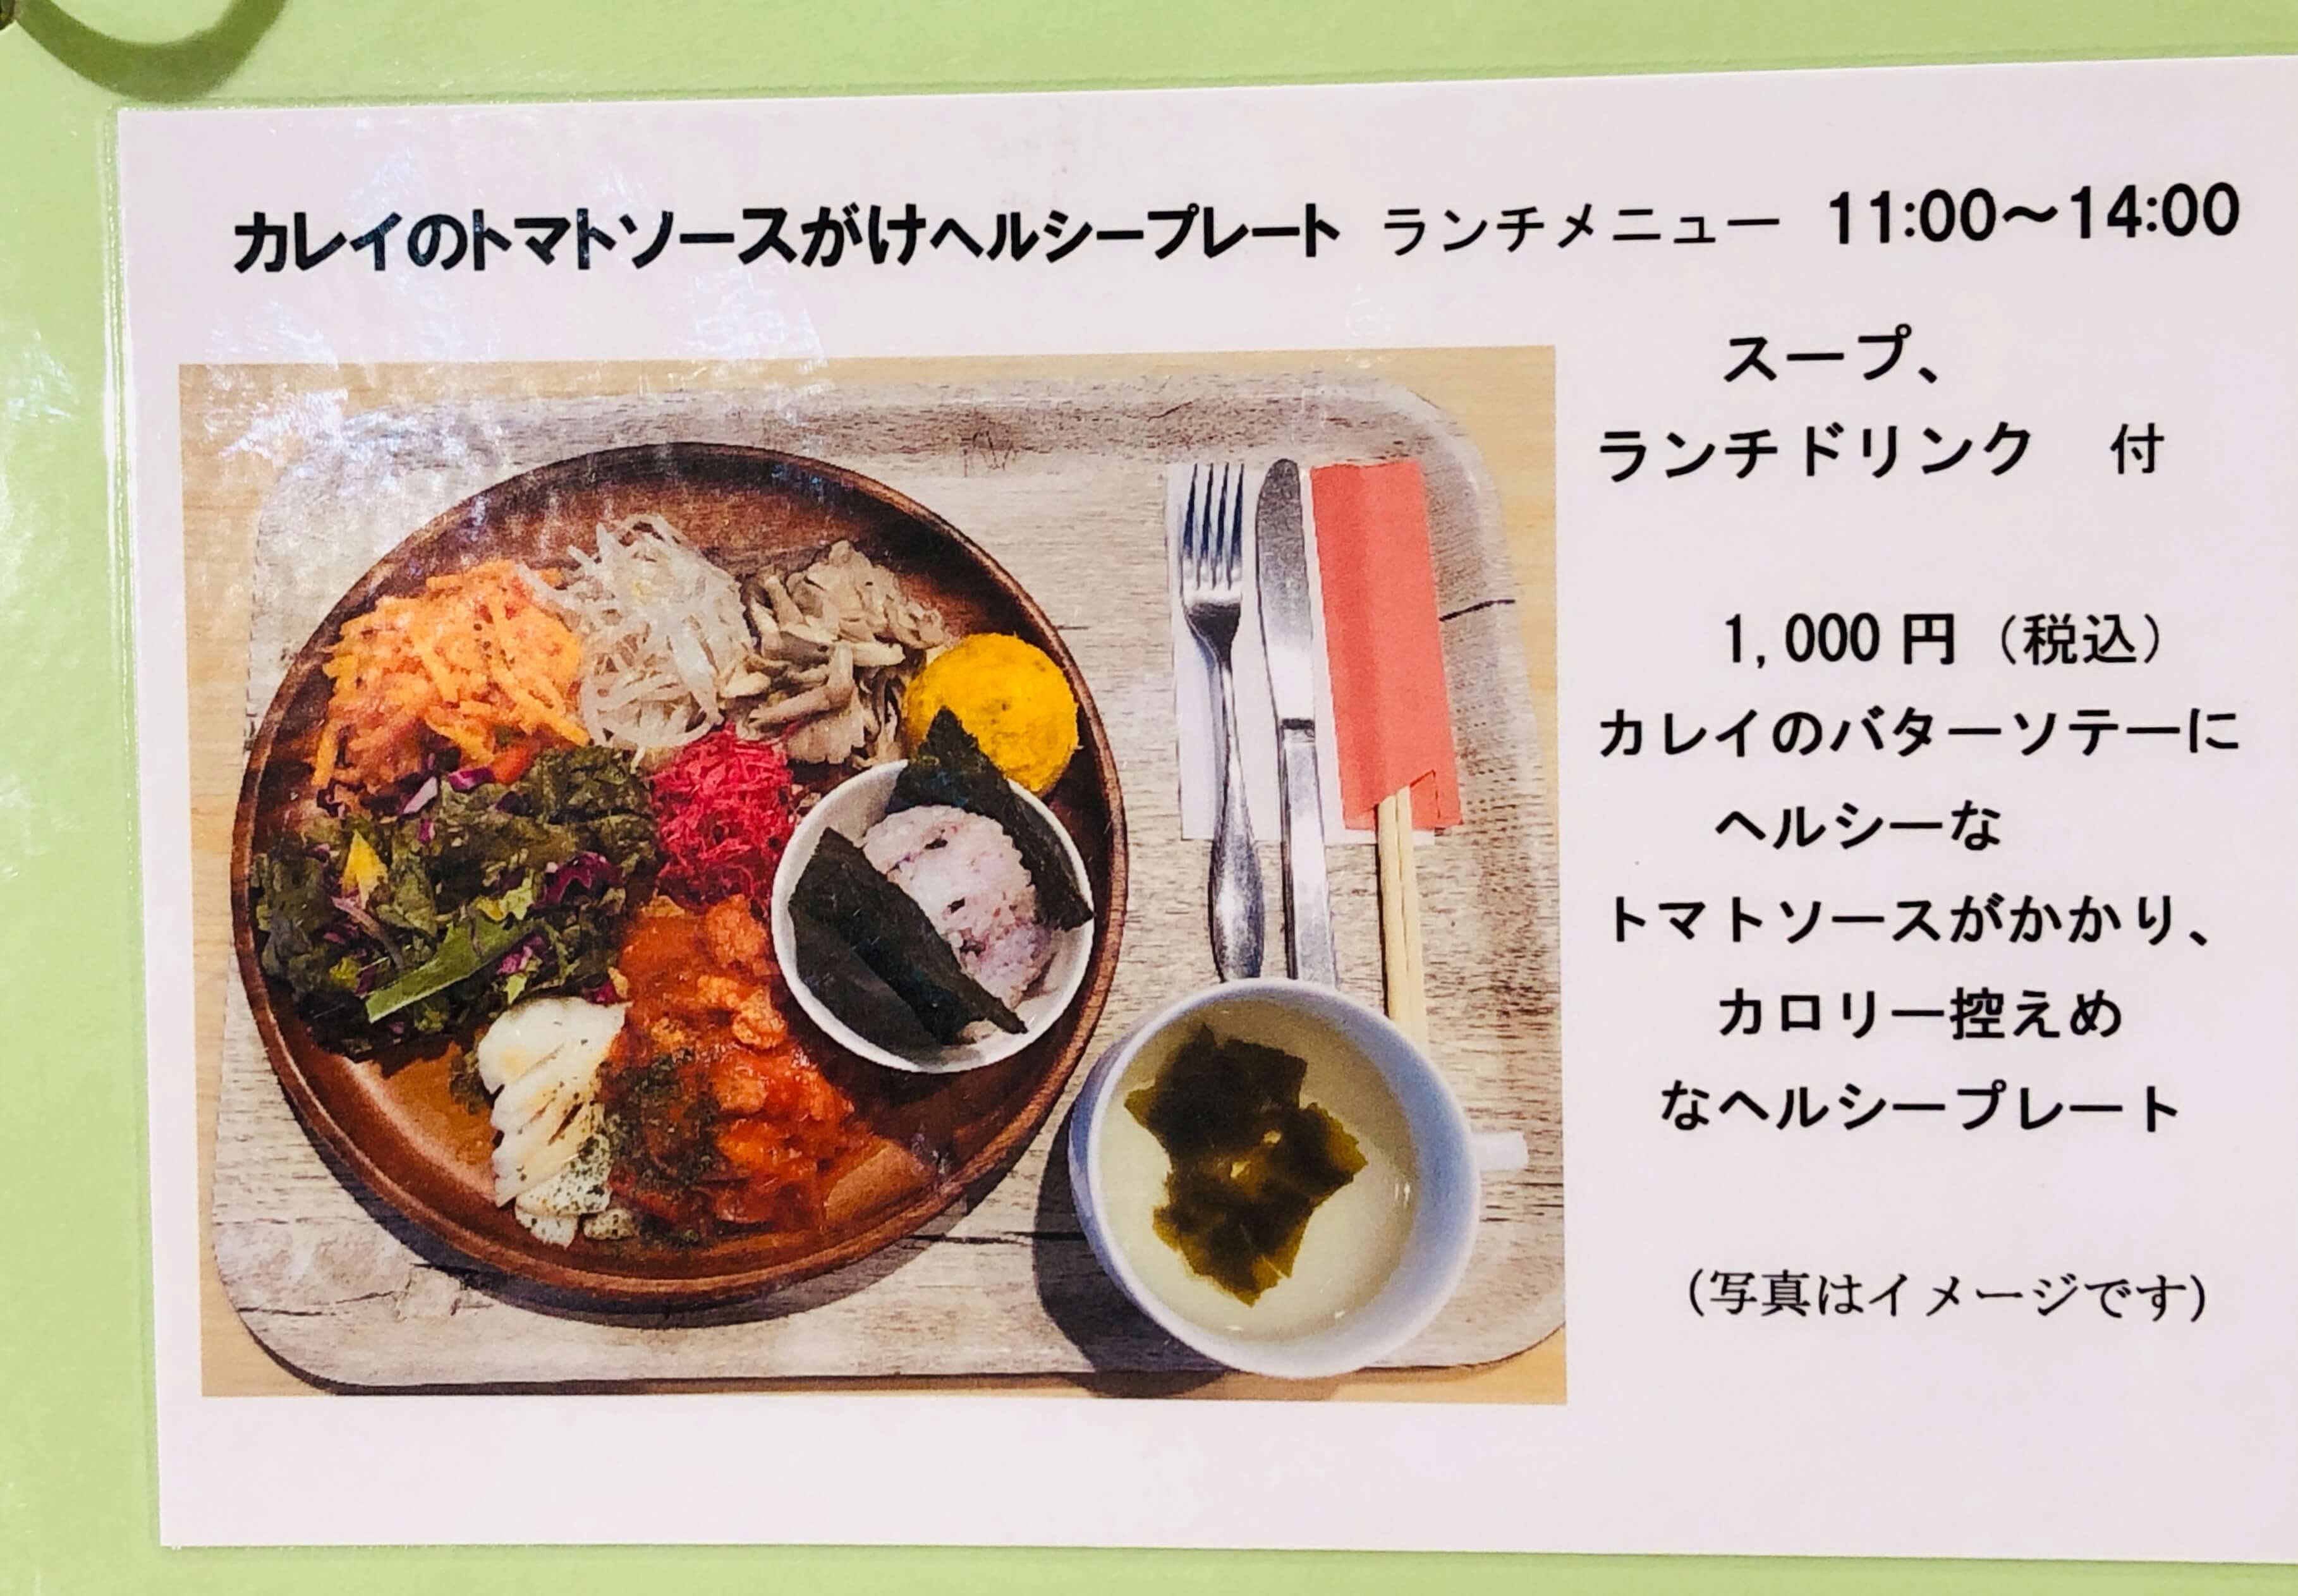 カレイのトマトソースがけヘルシープレート ランチメニュー 11:00～14:00
スープ、
ランチドリンク 付
1,000円（税込）
カレイのバターソテーに
ヘルシーな
トマトソースがかかり、
カロリー控えめ
なヘルシープレート
（写真はイメージです）